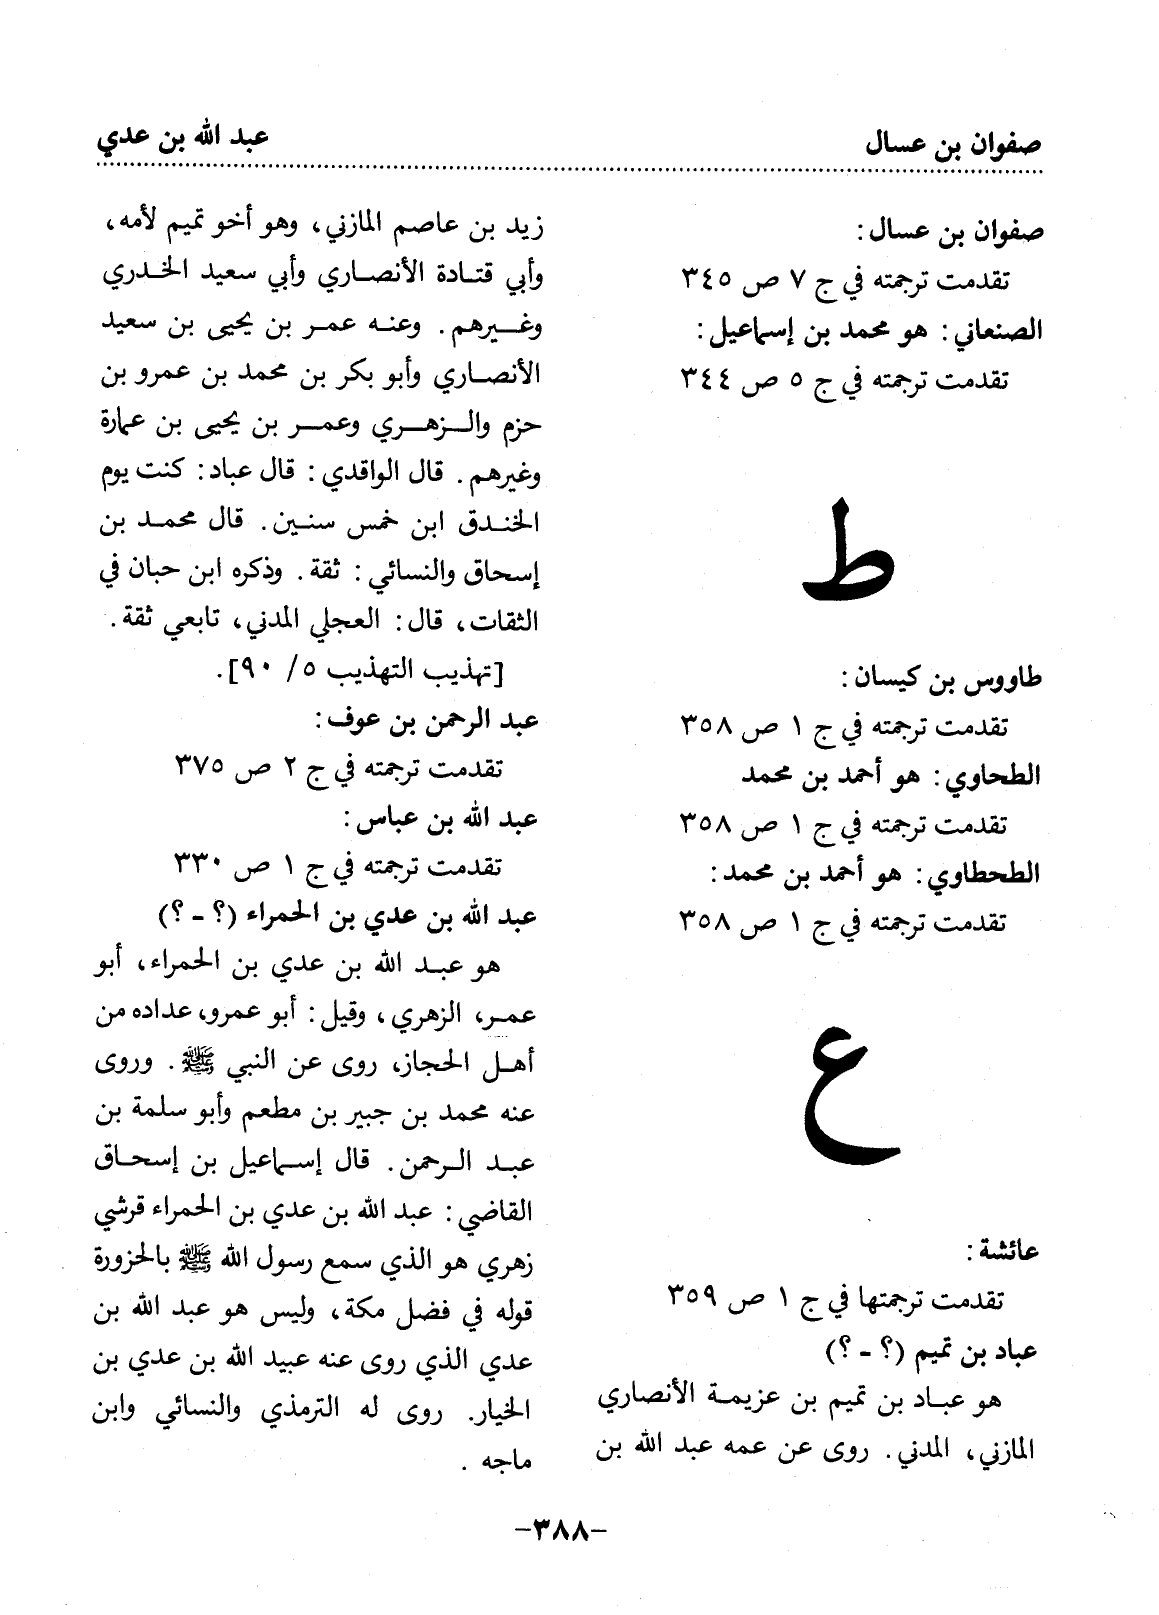 صفوان بن عسال
عبد الله بن عدي
صفوان بن عسال:
تقدمت ترجمته في ج ٧ ص ٣٤٥
الصنعاني: هو محمد بن إسماعيل:
تقدمت ترجمته في ج ٥ ص ٣٤٤
ط
طاووس بن كيسان:
تقدمت ترجمته في ج ١ ص ٣٥٨
الطحاوي: هو أحمد بن محمد
تقدمت ترجمته في ج ١ ص ٣٥٨
الطحطاوي: هو أحمد بن محمد:
تقدمت ترجمته في ج ١ ص ٣٥٨
ع
عائشة:
تقدمت ترجمتها في ج ١ ص ٣٥٩
عباد بن تميم (؟ - ؟)
هو عباد بن تميم بن عزيمة الأنصاري
المازني، المدني. روى عن عمه عبد الله بن
زيد بن عاصم المازني، وهو أخو تميم لأمه،
وأبي قتادة الأنصاري وأبي سعيد الخدري
وغيرهم. وعنه عمر بن يحيى بن سعيد
الأنصاري وأبو بكر بن محمد بن عمرو بن
حزم والزهري وعمر بن يحيى بن عمارة
وغيرهم. قال الواقدي: قال عباد: كنت يوم
الخندق ابن خمس سنين. قال محمد بن
إسحاق والنسائي: ثقة. وذكره ابن حبان في
الثقات، قال: العجلي المدني، تابعي ثقة.
[تهذيب التهذيب ٥/ ٩٠].
عبد الرحمن بن عوف:
تقدمت ترجمته في ج ٢ ص ٣٧٥
عبد الله بن عباس:
تقدمت ترجمته في ج ١ ص ٣٣٠
عبد الله بن عدي بن الحمراء (؟ - ؟)
هو عبد الله بن عدي بن الحمراء، أبو
عمر، الزهري، وقيل: أبو عمرو، عداده من
أهل الحجاز، روى عن النبي ﷺ. وروى
عنه محمد بن جبير بن مطعم وأبو سلمة بن
عبد الرحمن. قال إسماعيل بن إسحاق
القاضي: عبد الله بن عدي بن الحمراء قرشي
زهري هو الذي سمع رسول الله ﷺ بالحزورة
قوله في فضل مكة، وليس هو عبد الله بن
عدي الذي روى عنه عبيد الله بن عدي بن
الخيار. روى له الترمذي والنسائي وابن
ماجه .
-٣٨٨-